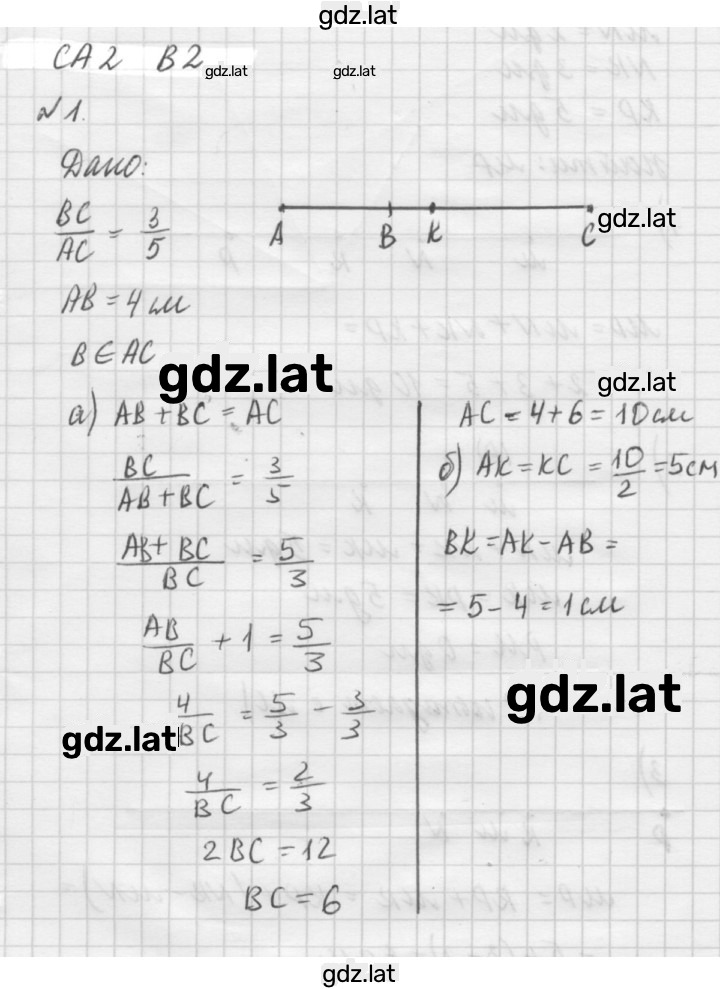 gdz.lat
СА2 В2
gdz.lat gdz.lat
№1.
Дано:
BC/AC = 3/5
A B K C
gdz.lat
AB = 4 см
B ∈ AC
gdz.lat
gdz.lat
а) AB + BC = AC
BC/(AB + BC) = 3/5
(AB + BC)/BC = 5/3
AB/BC + 1 = 5/3
4/BC = 5/3 - 3/3
gdz.lat
4/BC = 2/3
2BC = 12
BC = 6
AC = 4 + 6 = 10 см
б) AK = KC = 10/2 = 5 см
BK = AK - AB =
= 5 - 4 = 1 см
gdz.lat
gdz.lat